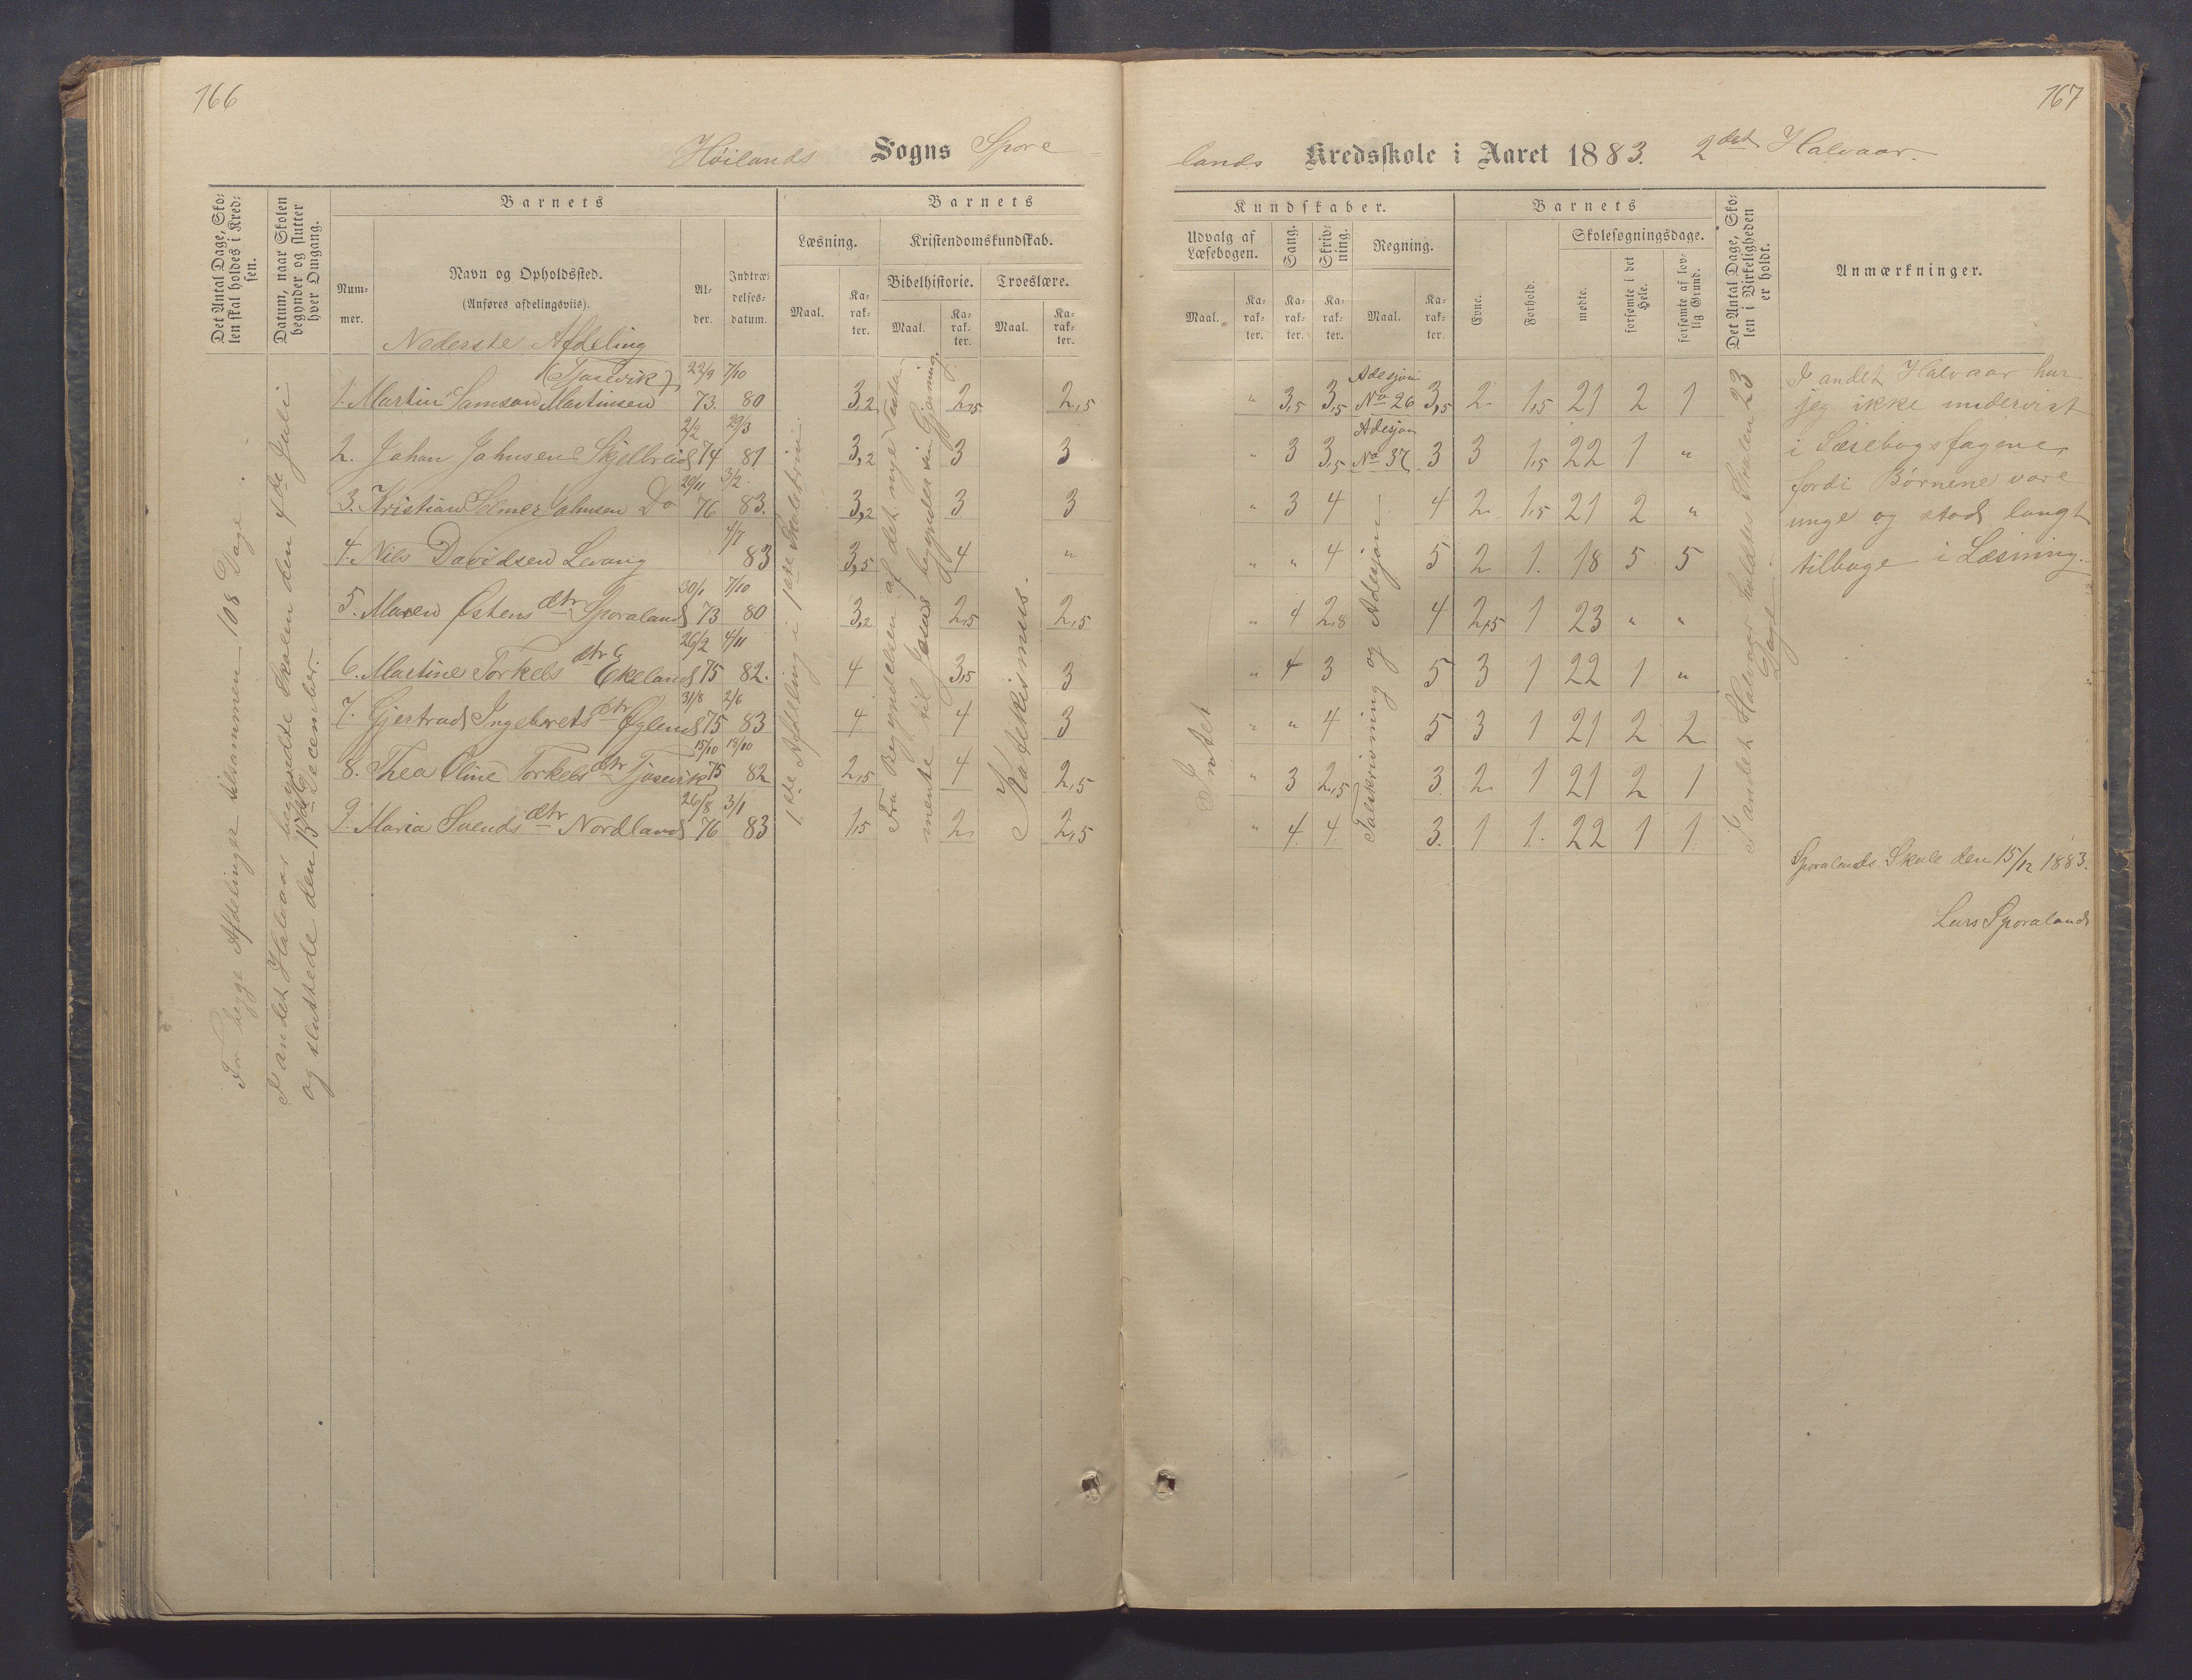 166
Höilands Sogns Spore
Det Antal Dage, Sko-
len skal holdes i Kred-
sen.
Datum, naar Skolen
begynder og slutter
hver Omgang.
Barnets
Num-
mer.
Navn og Opholdssted.
(Anføres afdelingsviis).
Al-
der.
Indtræ-
delses-
datum.
Barnets
Læsning.
Kristendomskundskab.
Bibelhistorie.
Troeslære.
Maal.
Ka-
rak-
ter.
Maal.
Ka-
rak-
ter.
Maal.
Ka-
rak-
ter.
For begge Afdelinger tilsammen 108 Dage.
I andet Halvaar begyndte Skolen den 4de Juli
og sluttede den 15de December.
Nederste Afdeling
(Tjosevik) 22/9 7/10
1. Martin Samson Martinsen 73. 80 3,2 2,5 2,5
2/2 29/3
2. Johan Johnsen Skjelbreid 74 81 3,2 3 3
29/11 3/2
3. Kristian Selmer Johnsen Do 76 83. 3,2 3 3
4/7
4. Nils Davidsen Levang 83 3,5 4 "
30/1 7/10
5. Maren Østens dtr Sporaland 73 80 3,2 2,5 2,5
26/2 4/11
6. Martine Torkels dtr Ekeland 75 82. 4 3,5 3
31/8 2/6
7. Gjertrud Ingebrets dtr Øglend 75 83 4 4 3
15/10 18/10
8. Thea Oline Torkels dtr Tjosevik 75 82 2,5 4 2,5
26/8 3/1
9. Maria Svends dtr Nordland 76 83 1,5 2 2,5
1ste Afdeling i 1ste Skoletrin
Fra Begyndelsen af det nye Testa-
mente til Jesus begynder sin Gjerning.
Katekismus.
167
lands Kredsskole i Aaret 1883. 2det Halvaar.
Kundskaber.
Udvalg af
Læsebogen.
Sang.
Skriv-
ning.
Regning.
Maal.
Ka-
rak-
ter.
Ka-
rak-
ter.
Ka-
rak-
ter.
Maal.
Ka-
rak-
ter.
Barnets
Evne.
Forhold.
Skolesøgningsdage.
mødte.
forsømte i det
Hele.
forsømte af lov-
lig Grund.
Det Antal Dage, Sko-
len i Virkeligheden
er holdt.
Anmærkninger.
Adesjon
" 3,5 3,5 No 26 3,5 2. 1,5 21 2 1
Adesjon
" 3 3,5 No 37 3 3 1,5 22 1 "
" 3 4 4 2. 1,5 21 2 "
" " 4 5 2 1. 18 5 5
" 4 2,8 4 2,5 1 23 " "
" 4 3 5 3 1 22 1 "
" " 4 5 3 1 21 2 2
" 3 2,5 3. 2. 1 21 2 1
" 4. 4. 3. 1 1. 22 1 1.
Intet
Talskrivning og Adesjon
I andet Halvaar holdtes Skolen 23
Dage
I andet Halvaar har
jeg ikke undervist
i Læsebogsfagene,
fordi Børnene vare
unge og stod langt
tilbage i Læsning.
Sporalands Skole den 15/12 1883.
Lars Sporaland